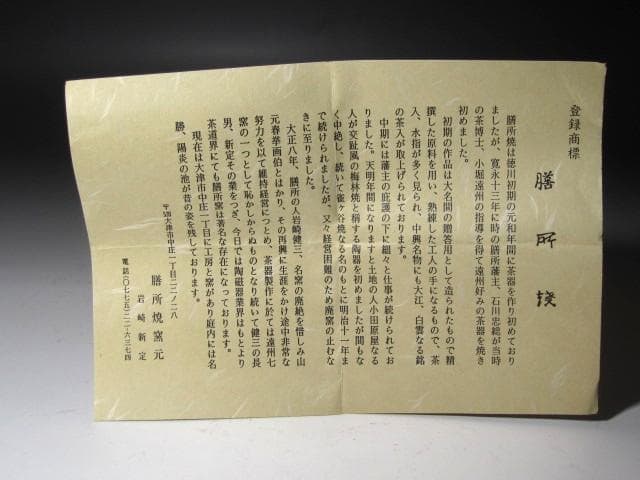 登録商標
膳所焼
膳所焼は徳川初期の元和年間に茶器を作り初めており
ましたが、寛永十三年に時の膳所藩主、石川忠総が当時
の茶博士、小堀遠州の指導を得て遠州好みの茶器を焼き
初めました。
初期の作品は大名間の贈答用として造られたもので精
撰した原料を用い、熟練した工人の手になるもので、茶
入、水指が多く見られ、中興名物にも大江、白雲なる銘
の茶入が取上げられております。
中期には藩主の庇護の下に細々と仕事が続けられてお
りました。天明年間になりますと土地の人小田原屋なる
人が交趾風の梅林焼と称する陶器を初めましたが間もな
く中絶し、続いて雀ヶ谷焼なる名のもとに明治十一年ま
で続けられましたが、又々経営困難のため廃窯の止むな
きに至りました。
大正八年、膳所の人岩崎健三、名窯の廃絶を惜しみ山
元春挙画伯とはかり、その再興に生涯をかけ途中非常な
努力を以て維持経営につとめ、茶器製作に於ては遠州七
窯の一つとして恥かしからぬものとなり続いて健三の長
男、新定その業をつぎ、今日では陶磁器業界はもとより
茶道界にても膳所窯は著名な存在になっております。
現在は大津市中庄一丁目に工房と窯があり庭内には名
勝、陽炎の池が昔の姿を残しております。
大津市中庄一丁目二二ノ二八
膳所焼窯元
岩崎新定
電話〇七七五―二三―六三七四